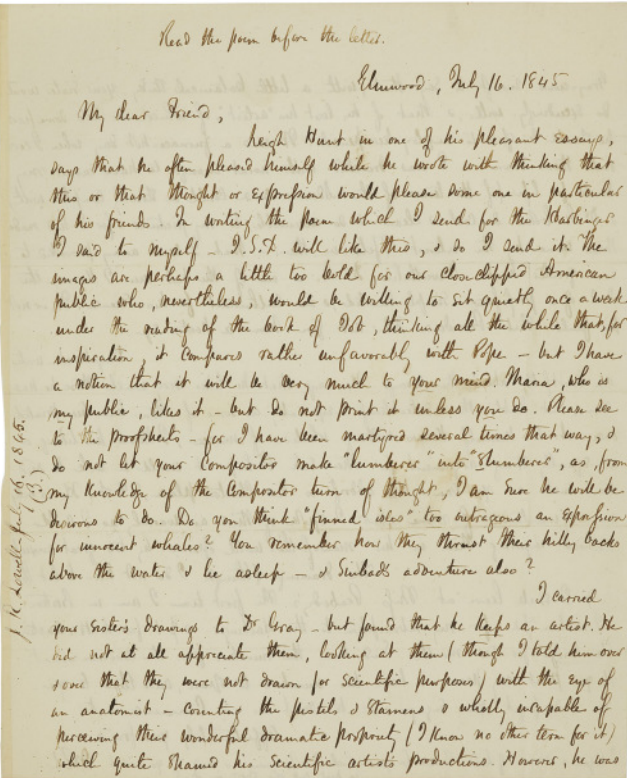 Read the poem before the letter.
Elmwood, July 16. 1845
My dear Friend,
Leigh Hunt in one of his pleasant essays,
says that he often pleased himself while he wrote with thinking that
this or that thought or expression would please some one in particular
of his friends. In writing the poem which I send for the Harbinger
I said to myself – J.S.D. will like this, & so I send it. The
images are perhaps a little too bold for our closeclipped American
public who, nevertheless, would be willing to sit quietly once a week
under the reading of the book of Job, thinking all the while that, for
inspiration, it compares rather unfavorably with Pope – but I have
a notion that it will be very much to your mind. Maria, who is
my public, likes it – but do not print it unless you do. Please see
to the proofsheets – for I have been martyred several times that way, &
do not let your compositor make "lumberer" into "slumberer", as, from
my knowledge of the compositor turn of thought, I am sure he will be
desirous to do. Do you think "finned isles" too outrageous an expression
for innocent whales? You remember how they thrust their hilly backs
above the water & lie asleep – & Sinbads adventure also?
I carried
your sister's drawings to Dr Gray – but found that he keeps an artist. He
did not at all appreciate them, looking at them (though I told him over
& over that they were not drawn for scientific purposes) with the eye of
an anatomist – counting the pistils & stamens & wholly incapable of
perceiving their wonderful dramatic propriety (I know no other term for it)
which quite shamed his scientific artist's productions. However, he was
J. R. Lowell July 16. 1845.
(3)